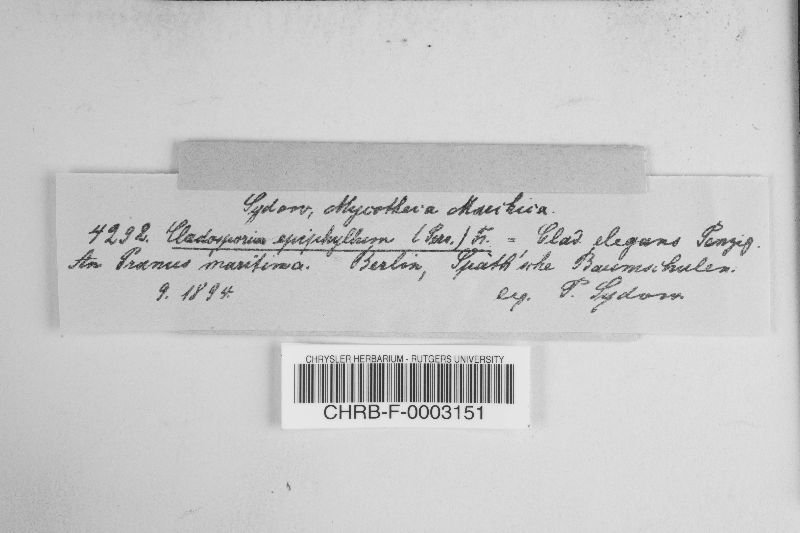 Sydow, Mycotheca Marchica.
4292. Cladosporium epiphyllum (Pers.) Fr. = Clad. elegans Penzig.
An Prunus maritima. Berlin, Späth'sche Baumschulen.
9. 1894. leg. P. Sydow.
CHRYSLER HERBARIUM - RUTGERS UNIVERSITY
CHRB-F-0003151